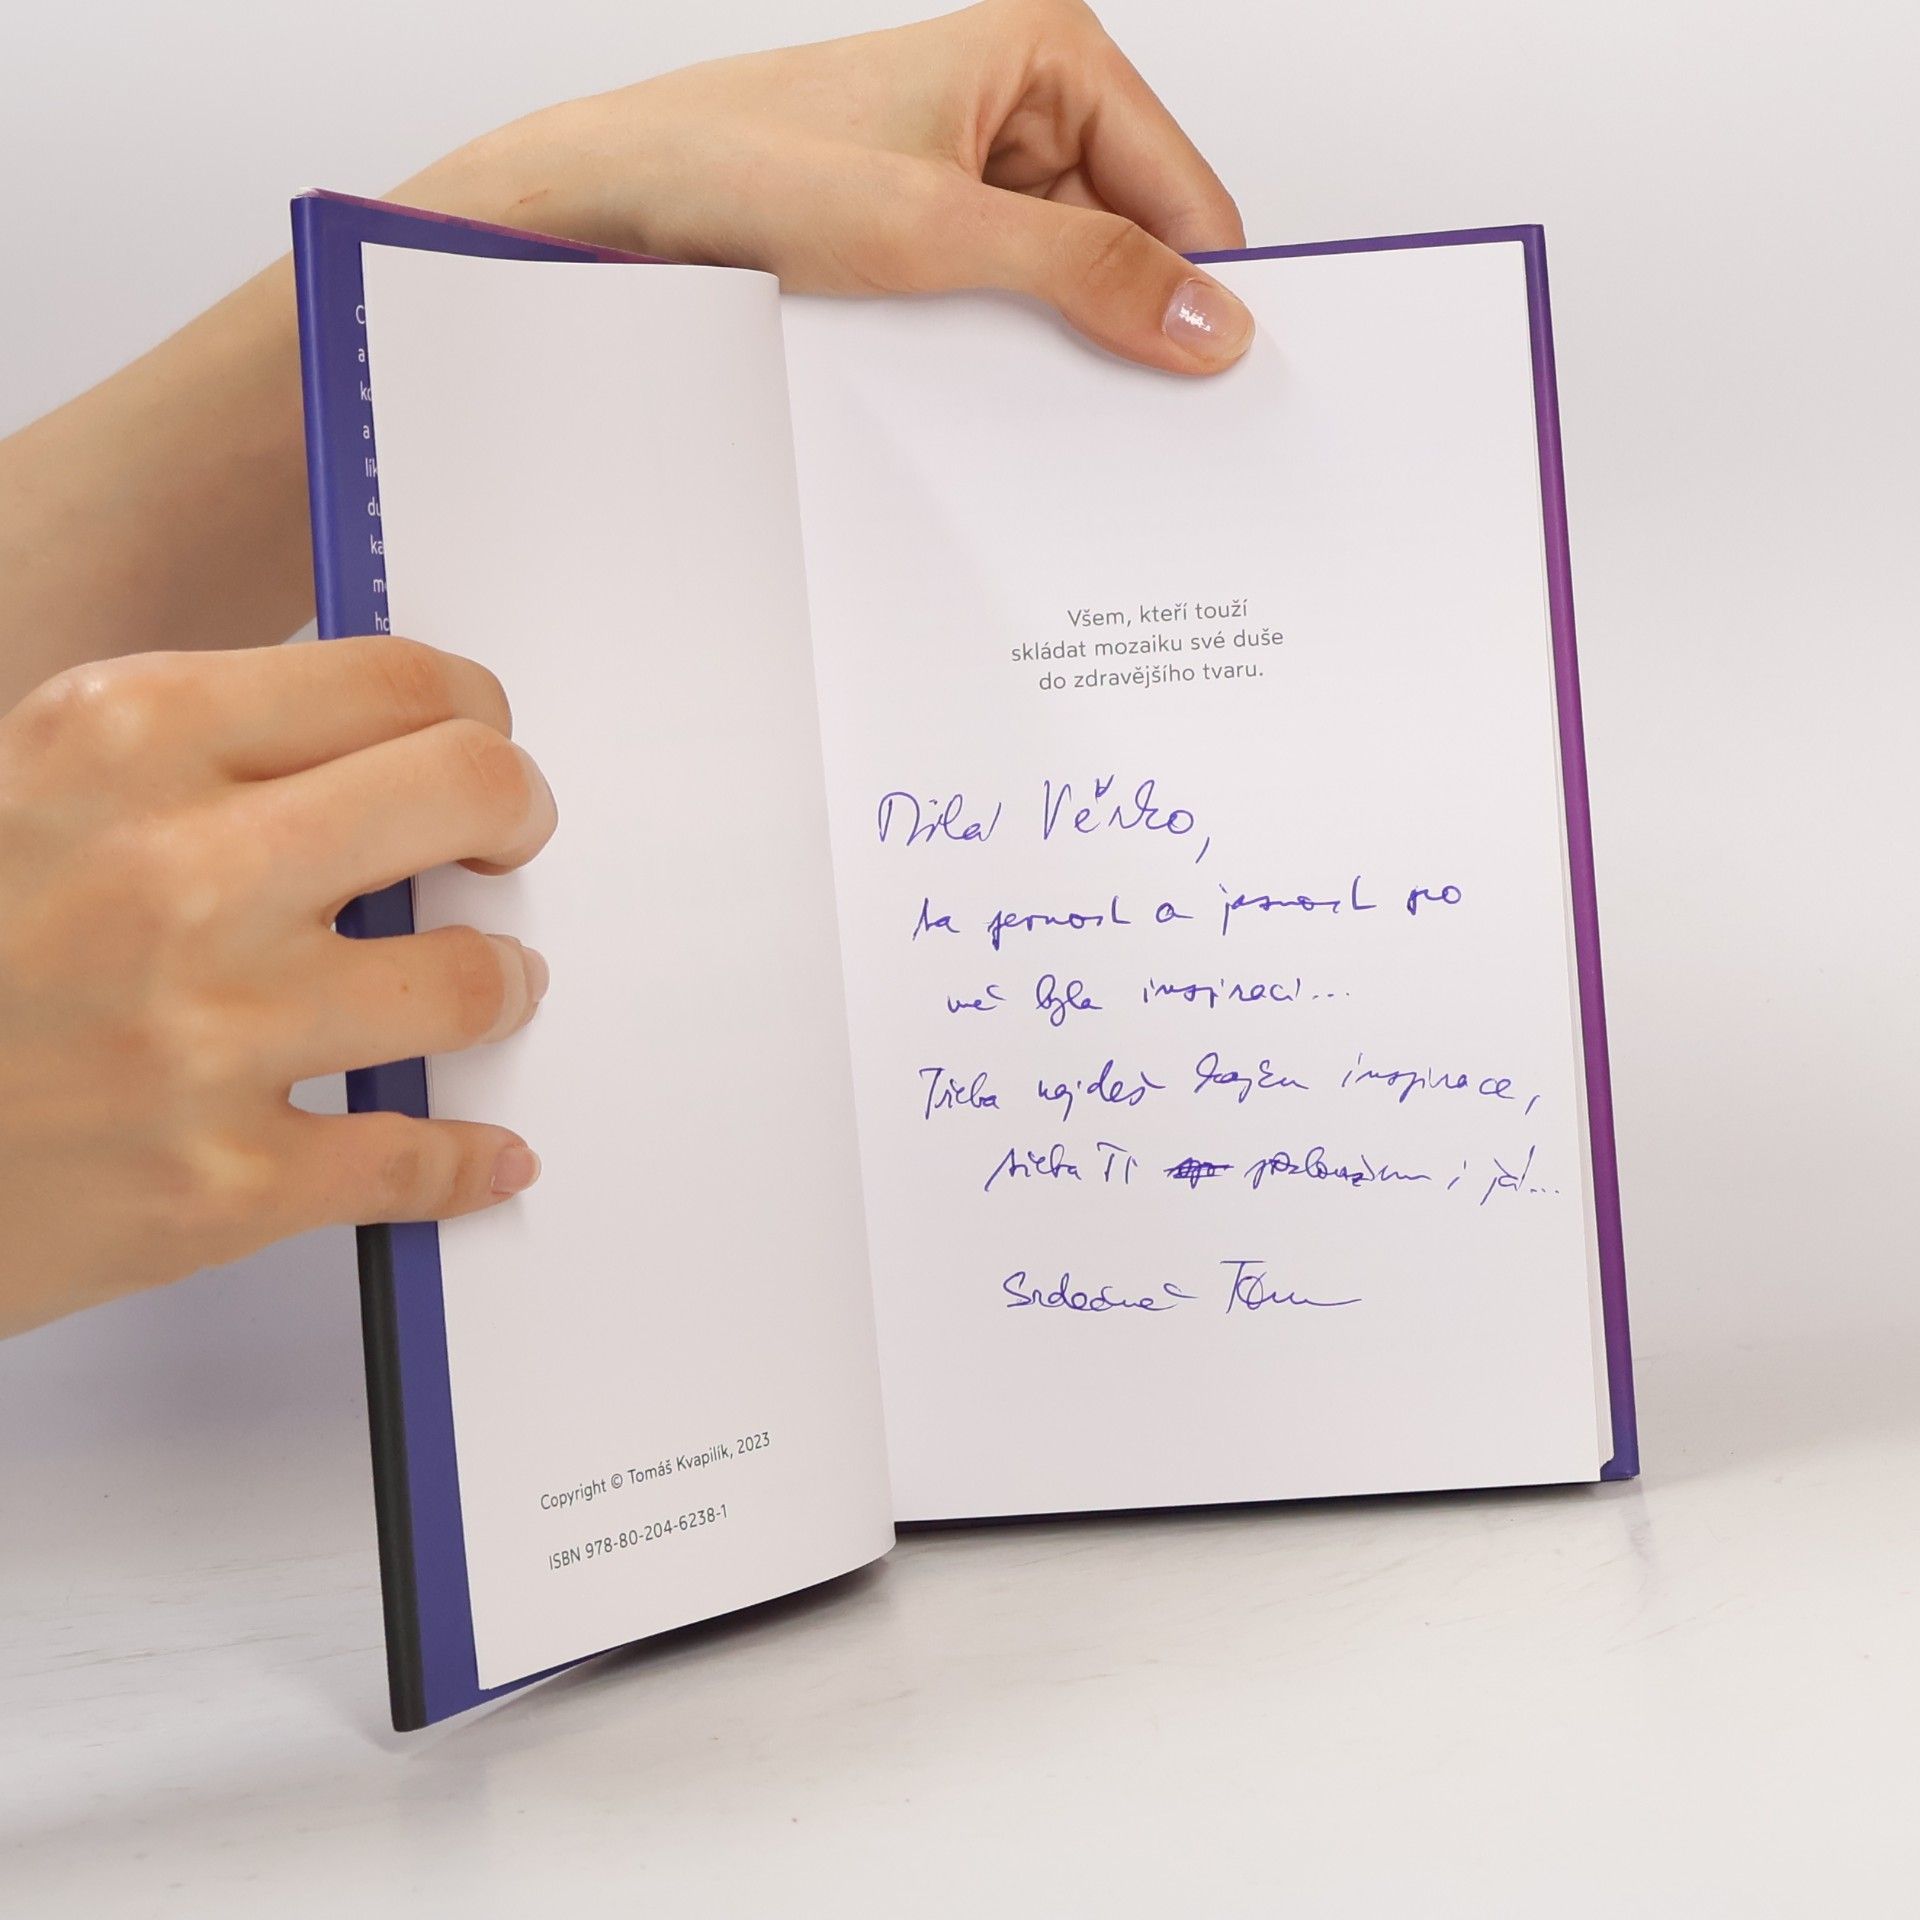 C
a
a
du
ka
Copyright © Tomáš Kvapilík, 2023
ISBN 978-80-204-6238-1
Všem, kteří touží
skládat mozaiku své duše
do zdravějšího tvaru.
Milá Věrko,
ta a jasnost pro
mě byla inspirací...
Třeba najdeš inspirace,
třeba Ti i já...
Srdečně Tom